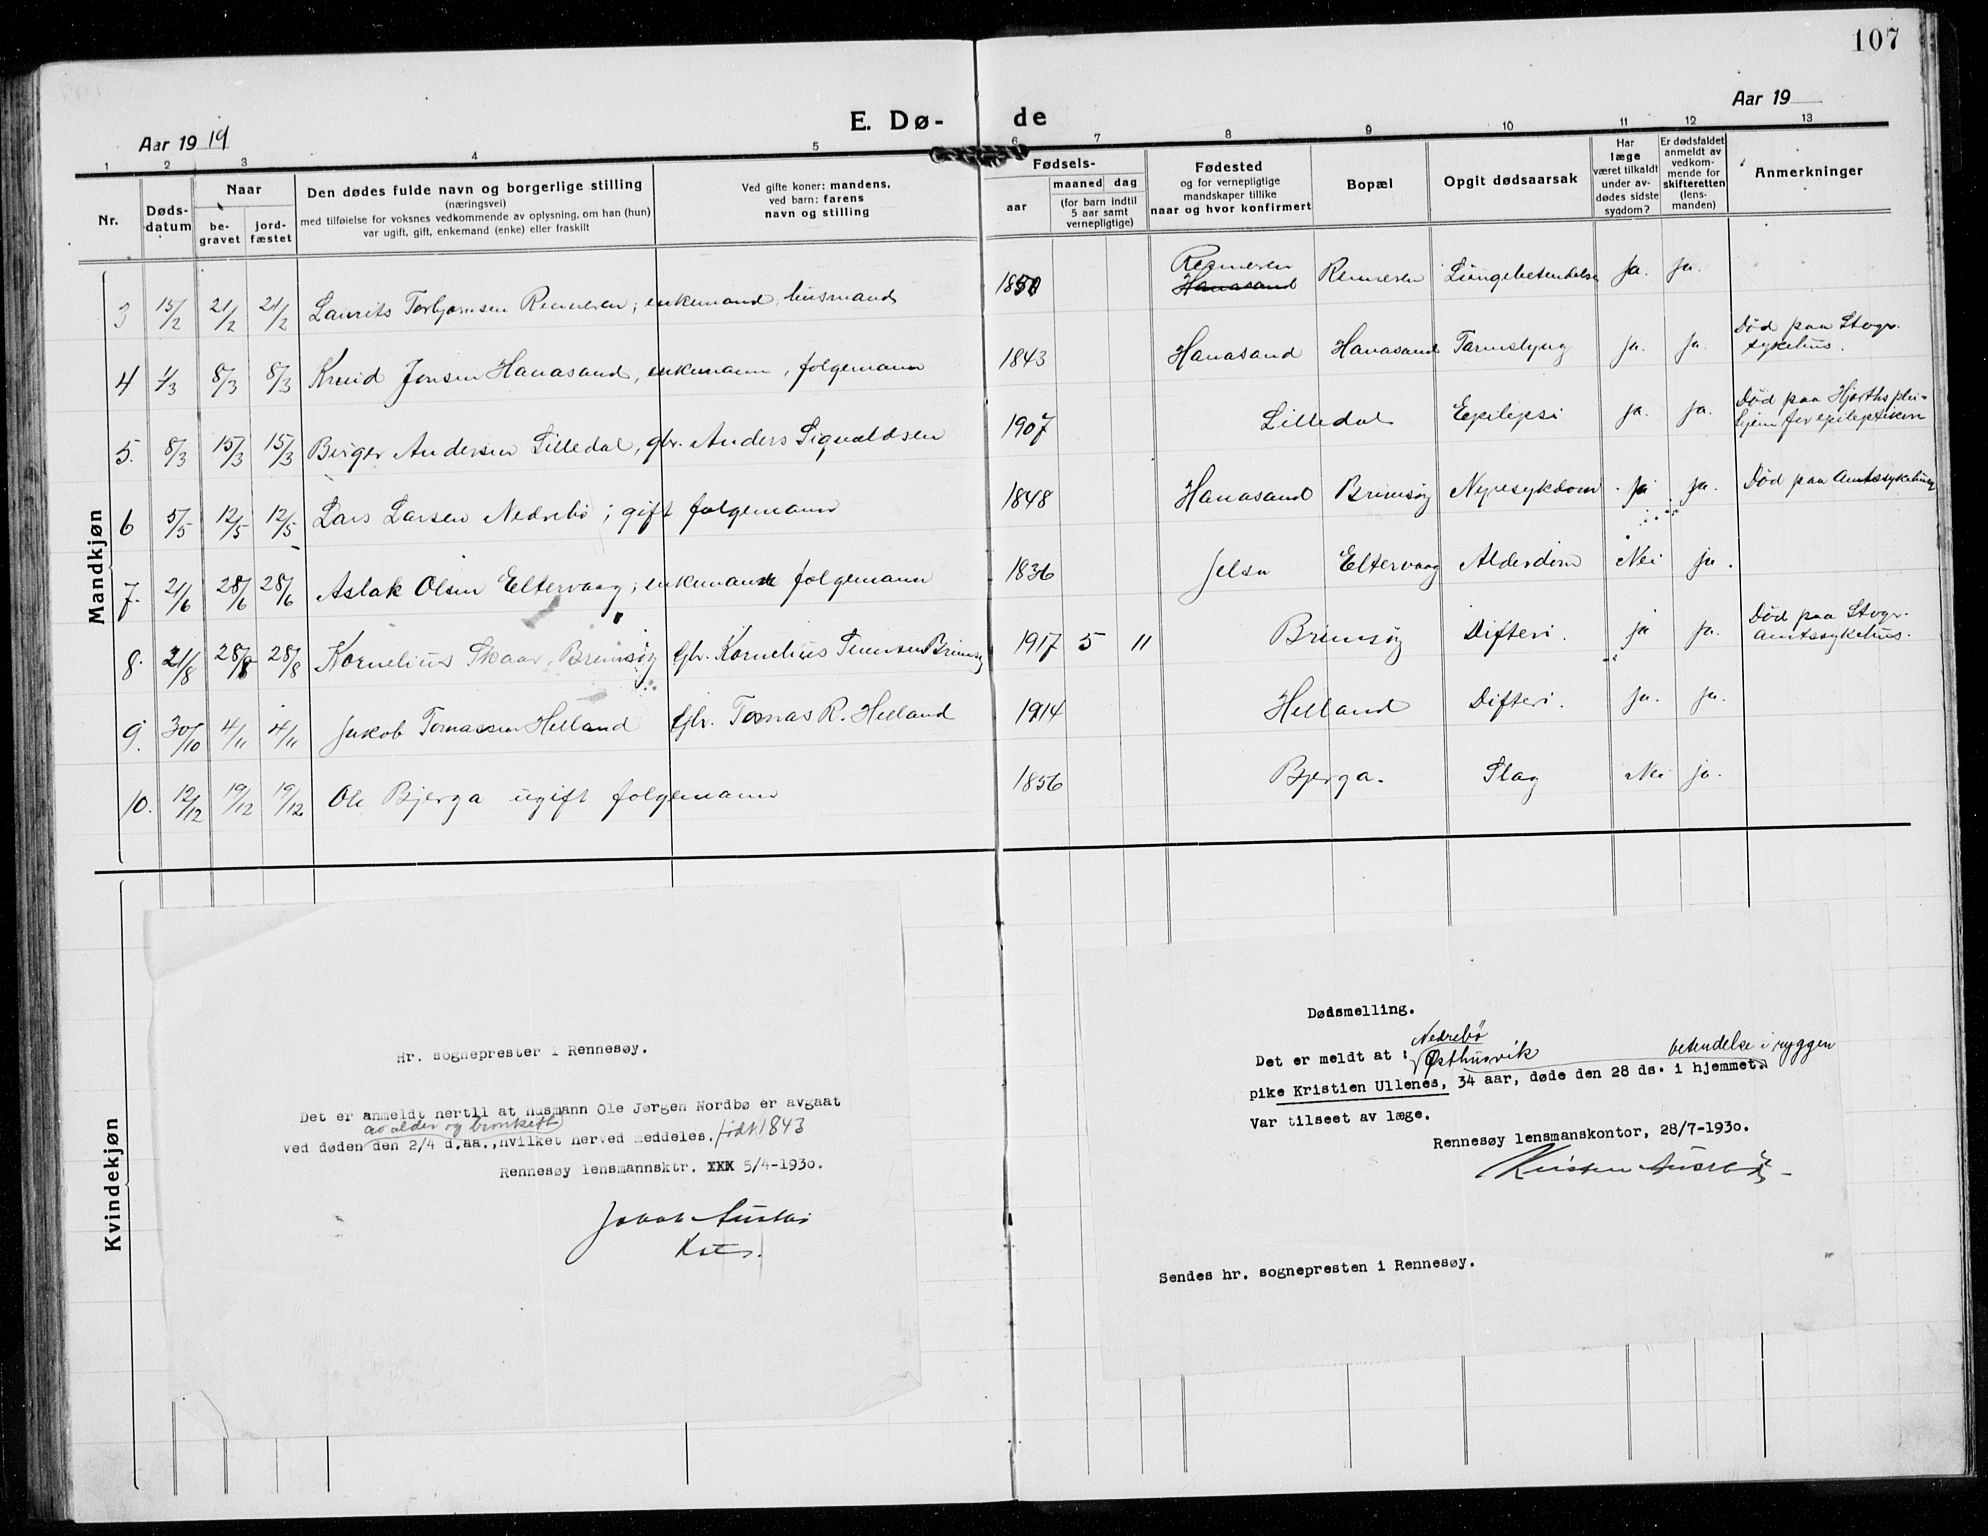 107
E. Dø- de
Aar 1919
Aar 19
1 2 3 4 5 6 7 8 9 10 11 12 13
Nr.
Døds-
datum
Naar
be-
gravet
jord-
fæstet
Den dødes fulde navn og borgerlige stilling
(næringsvei)
med tilføielse for voksnes vedkommende av oplysning, om han (hun)
var ugift, gift, enkemand (enke) eller fraskilt
Ved gifte koner: mandens,
ved barn: farens
navn og stilling
Fødsels-
aar
maaned dag
(for barn indtil
5 aar samt
vernepligtige)
Fødested
og for vernepligtige
mandskaper tillike
naar og hvor konfirmert
Bopæl
Opgit dødsaarsak
Har
læge
været tilkaldt
under av-
dødes sidste
sygdom?
Er dødsfaldet
anmeldt av
vedkom-
mende for
skifteretten
(lens-
manden)
Anmerkninger
Mandkjøn
3 15/2 21/2 21/2 Laurits Torbjørnsen Renneren; enkemand, husmand 1850 Renneren Hanasand Renneren Lungebetendelse ja. ja.
4 1/3 8/3 8/3 Knud Jonsen Hanasand, enkemann, folgemann 1843 Hanasand Hanasand Tarmslyng ja. ja. Død paa Stvgr. sykehus.
5. 8/3 15/3 15/3 Birger Andersen Lilledal, gbr. Anders Sigvaldsen 1907 Lilledal Epilepsi ja. ja. Død paa Hjorths plei- hjem for epileptikere
6 5/5 12/5 12/5 Lars Larsen Nedrebö; gift folgemann 1848 Hanasand Brimsöy Nyresykdom ja ja. Død paa Amtssykehuset
7. 21/6 28/6 28/6 Aslak Olsen Eltervaag; enkemann folgemann 1836 Jelsa Eltervaag Alderdom Nei ja.
8. 21/8 28/8 28/8 Kornelius Skaar Brimsöy Gbr. Kornelius Brimsöy 1917 5 11 Brimsöy Difteri. ja ja. Død paa Stvgr. Amtssykehus.
9. 30/10 4/11 4/11 Jakob Tomassen Helland Gbr. Tomas R. Helland 1914 Helland Difteri. ja. ja.
10. 12/12 19/12 19/12 Ole Bjerga ugift folgemann 1856 Bjerga. Slag Nei ja.
Kvindekjøn
Hr. sogneprester i Rennesøy.
Det er anmeldt hertil at husmann Ole Jørgen Nordbø er avgaat
av alder og bronkitt
ved døden den 2/4 d.aa., hvilket herved meddeles. født 1843
Rennesøy lensmannsktr. XXX 5/4-1930.
Kst.
Dødsmelling.
Nedrebö
Det er meldt at : Østhusvik betendelse i ryggen
pike Kristien Ullenes, 34 aar, døde den 28 ds. i hjemmet.
Var tilseet av læge.
Rennesøy lensmanskontor, 28/7-1930.
Sendes hr. sognepresten i Rennesøy.